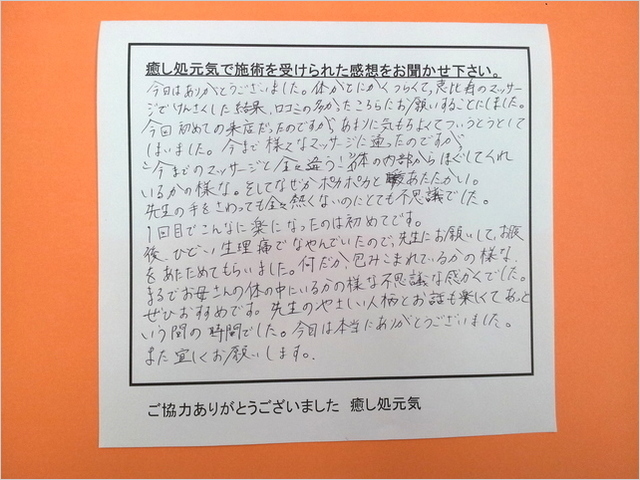 癒し処元気で施術を受けられた感想をお聞かせ下さい。
今日はありがとうございました。体がとにかくつらくて、恵比寿のマッサー
ジでけんさくした結果、口コミの多かったこちらにお願いすることにしました。
今回初めての来店だったのですが、あまりに気もちよくてついうとうとして
しまいました。今まで様々なマッサージに通ったのですが、
今までのマッサージと全々違う！体の内部からほぐしてくれ
ているかの様な。そしてなぜかポカポカとあたたかい。
先生の手をさわっても全々熱くないのにとても不思議でした。
1回目でこんなに楽になったのは初めてです。
後、ひどい生理痛でなやんでいたので、先生にお願いして、お腹
をあたためてもらいました。何だか、包みこまれているかの様な、
まるでお母さんの体の中にいるかの様な不思議な感かくでした。
ぜひおすすめです。先生のやさしい人柄とお話も楽しくてあっと
いう間の時間でした。今日は本当にありがとうございました。
また宜しくお願いします。
ご協力ありがとうございました 癒し処元気